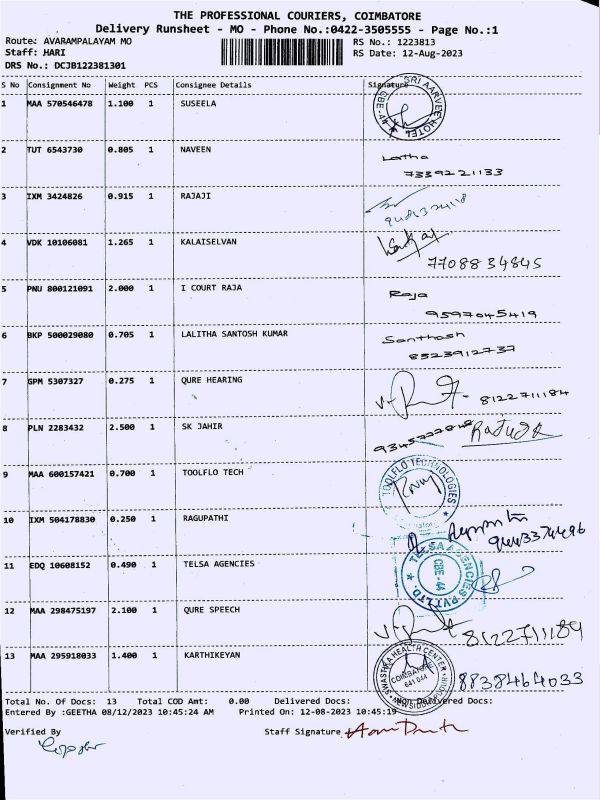 THE PROFESSIONAL COURIERS, COIMBATORE
Delivery Runsheet - MO - Phone No.:0422-3505555 - Page No.:1
Route: AVARAMPALAYAM MO RS No.: 1223813
Staff: HARI RS Date: 12-Aug-2023
DRS No.: DCJB122381301
S No Consignment No Weight PCS Consignee Details Signature
1 MAA 570546478 1.100 1 SUSEELA SRI AARVEE HOTEL CBE-44
2 TUT 6543730 0.805 1 NAVEEN Latha
7339221133
3 IXM 3424826 0.915 1 RAJAJI
4 VDK 10106081 1.265 1 KALAISELVAN
7708834845
5 PNU 800121091 2.000 1 I COURT RAJA Raja
9597045419
6 BKP 500029080 0.705 1 LALITHA SANTOSH KUMAR Santhosh
8523912737
7 GPM 5307327 0.275 1 QURE HEARING 8122711184
8 PLN 2283432 2.500 1 SK JAHIR
9 MAA 600157421 0.700 1 TOOLFLO TECH TOOLFLO TECHNOLOGIES
10 IXM 504178830 0.250 1 RAGUPATHI
11 EDQ 10608152 0.490 1 TELSA AGENCIES TELSA AGENCIES PVT LTD. CBE-44
12 MAA 298475197 2.100 1 QURE SPEECH 8122711184
13 MAA 295918033 1.400 1 KARTHIKEYAN SWASTIKA HEALTH CENTER COIMBATORE 641 044 8838464033
Total No. Of Docs: 13 Total COD Amt: 0.00 Delivered Docs: Non Delivered Docs:
Entered By :GEETHA 08/12/2023 10:45:24 AM Printed On: 12-08-2023 10:45:19
Verified By Staff Signature